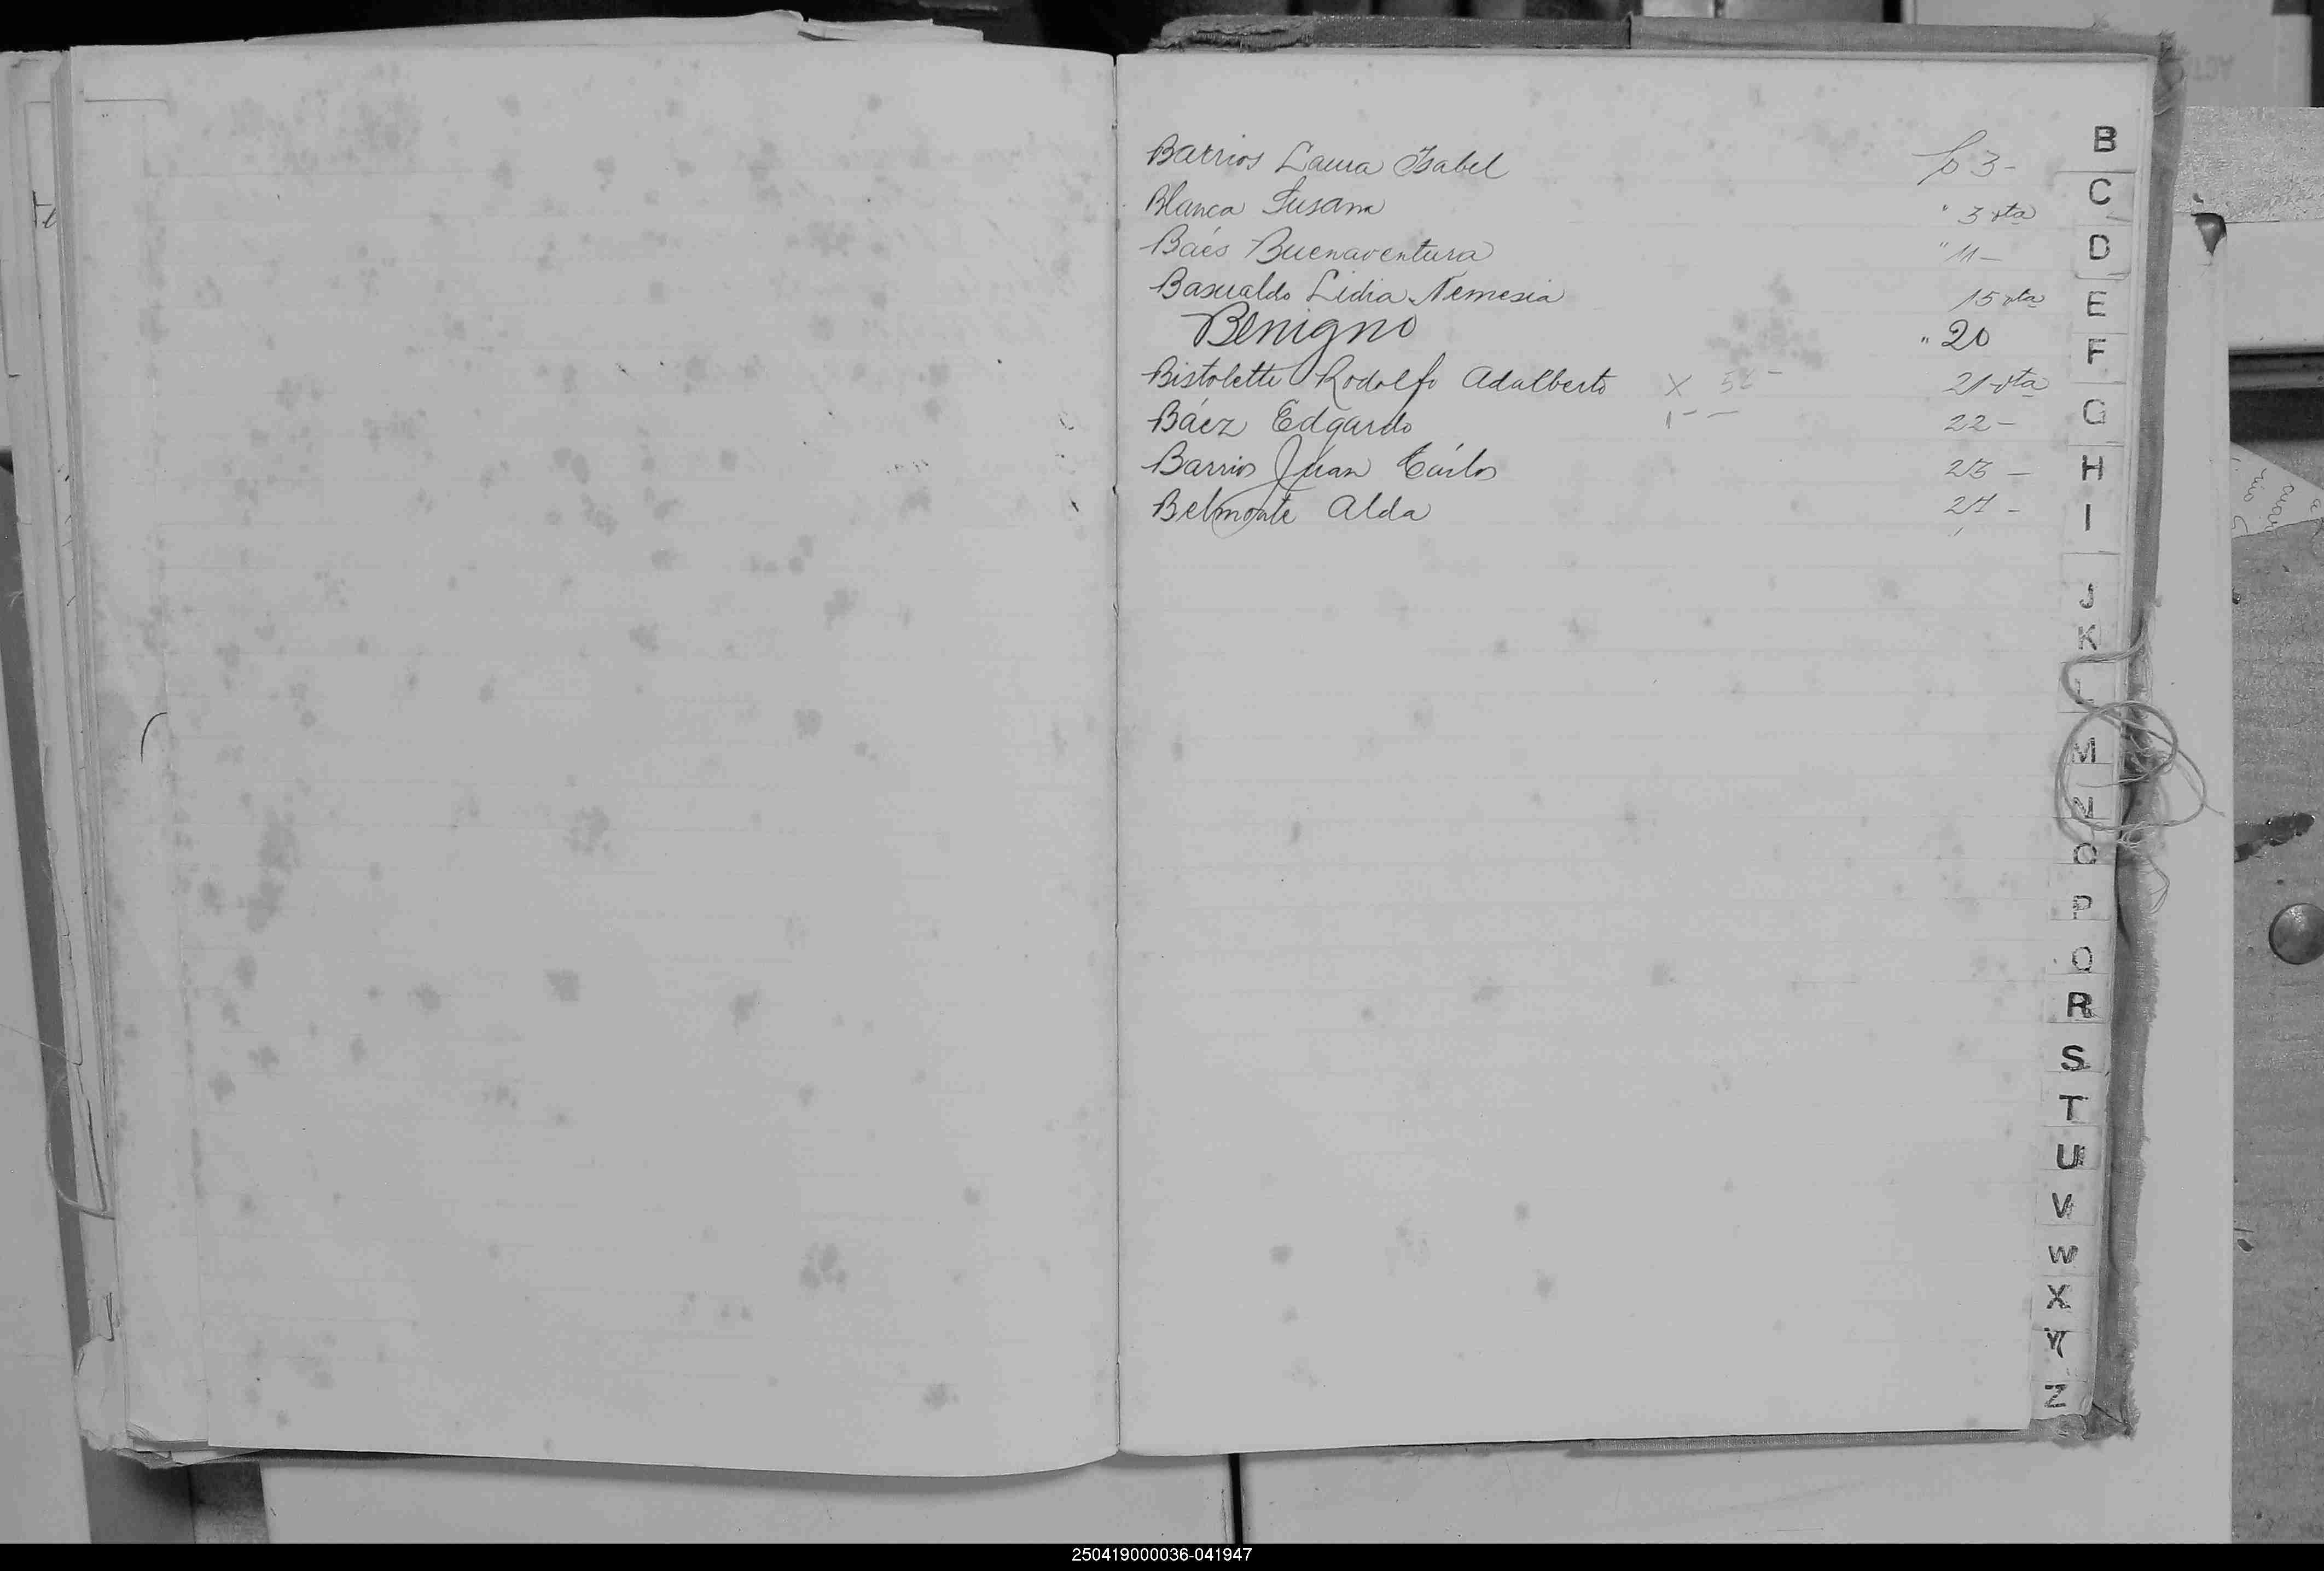 Barrios Laura Isabel fo 3-
Blanca Susana " 3 vta
Báes Buenaventura " 11-
Basualdo Lidia Nemesia 15 vta
Benigno " 20
Bistoletti Rodolfo Adalberto X 21 vta
Báez Edgardo 22-
Barrios Juan Cárlos 23 -
Belmonte Alda 27 -
B
C
D
E
F
G
H
I
J
K
L
M
N
O
P
Q
R
S
T
U
V
W
X
Y
Z
250419000036-041947